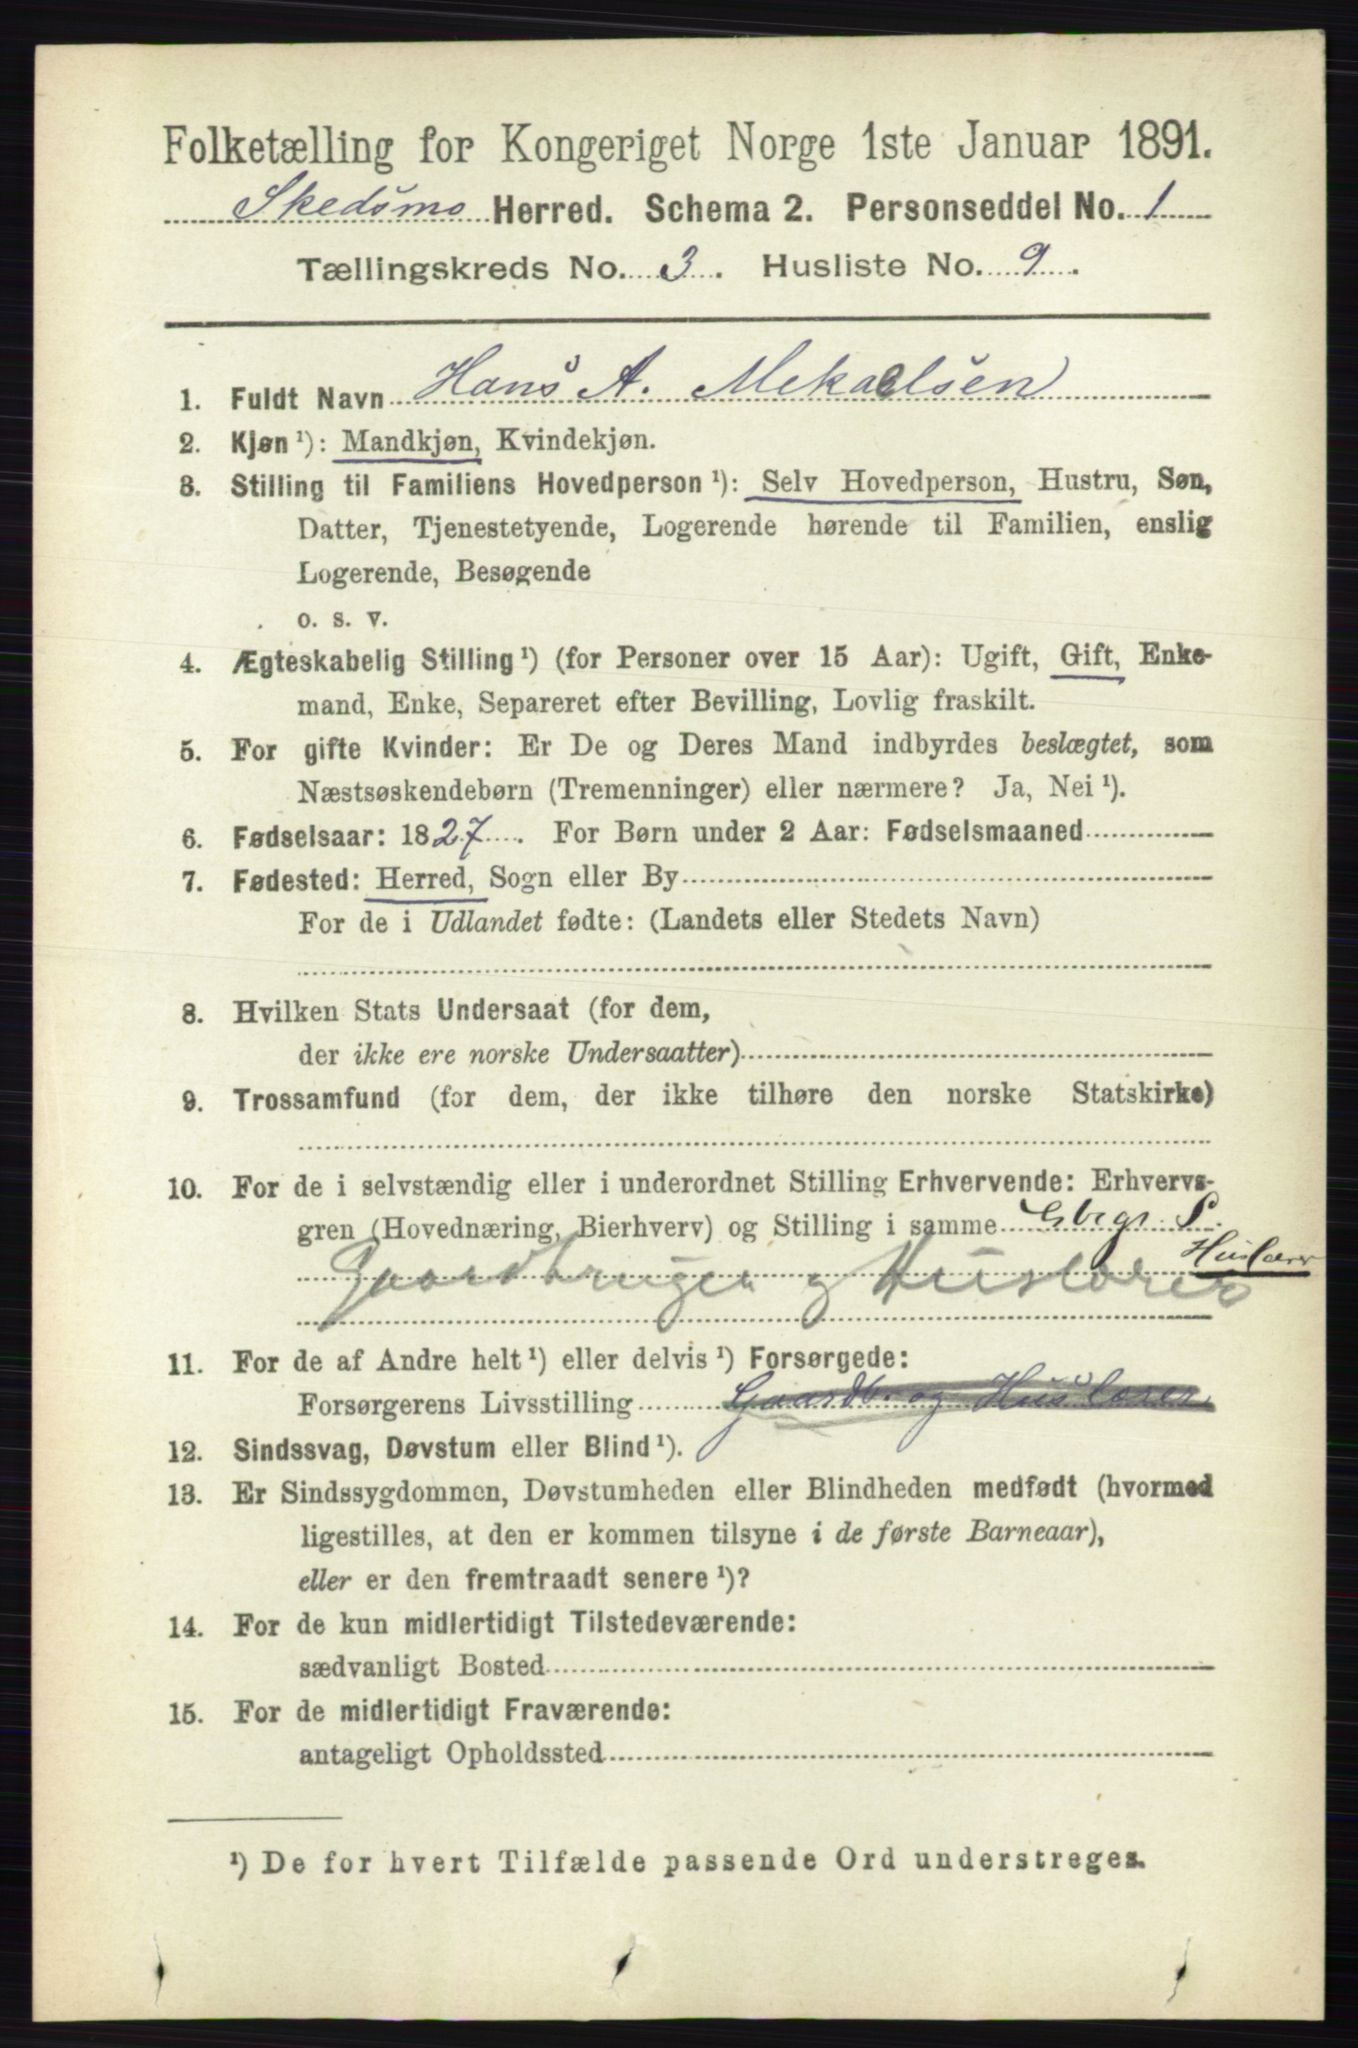 Folketælling for Kongeriget Norge 1ste Januar 1891.
Skedsmo Herred. Schema 2. Personseddel No. 1
Tællingskreds No. 3. Husliste No. 9.
1. Fuldt Navn Hans A. Mekaelsen
2. Kjøn ¹): Mandkjøn, Kvindekjøn.
3. Stilling til Familiens Hovedperson ¹): Selv Hovedperson, Hustru, Søn,
Datter, Tjenestetyende, Logerende hørende til Familien, enslig
Logerende, Besøgende
o. s. v.
4. Ægteskabelig Stilling ¹) (for Personer over 15 Aar): Ugift, Gift, Enke-
mand, Enke, Separeret efter Bevilling, Lovlig fraskilt.
5. For gifte Kvinder: Er De og Deres Mand indbyrdes beslægtet, som
Næstsøskendebørn (Tremenninger) eller nærmere? Ja, Nei ¹).
6. Fødselsaar: 1827. For Børn under 2 Aar: Fødselsmaaned
7. Fødested: Herred, Sogn eller By
For de i Udlandet fødte: (Landets eller Stedets Navn)
8. Hvilken Stats Undersaat (for dem,
der ikke ere norske Undersaatter)
9. Trossamfund (for dem, der ikke tilhøre den norske Statskirke)
10. For de i selvstændig eller i underordnet Stilling Erhvervende: Erhvervs-
gren (Hovednæring, Bierhverv) og Stilling i samme Gbrgr S.
Huslærer
Gaardbruger og Huslærer
11. For de af Andre helt ¹) eller delvis ¹) Forsørgede:
Forsørgerens Livsstilling Gaardb. og Huslærer
12. Sindssvag, Døvstum eller Blind ¹).
13. Er Sindssygdommen, Døvstumheden eller Blindheden medfødt (hvormed
ligestilles, at den er kommen tilsyne i de første Barneaar),
eller er den fremtraadt senere ¹)?
14. For de kun midlertidigt Tilstedeværende:
sædvanligt Bosted
15. For de midlertidigt Fraværende:
antageligt Opholdssted
¹) De for hvert Tilfælde passende Ord understreges.